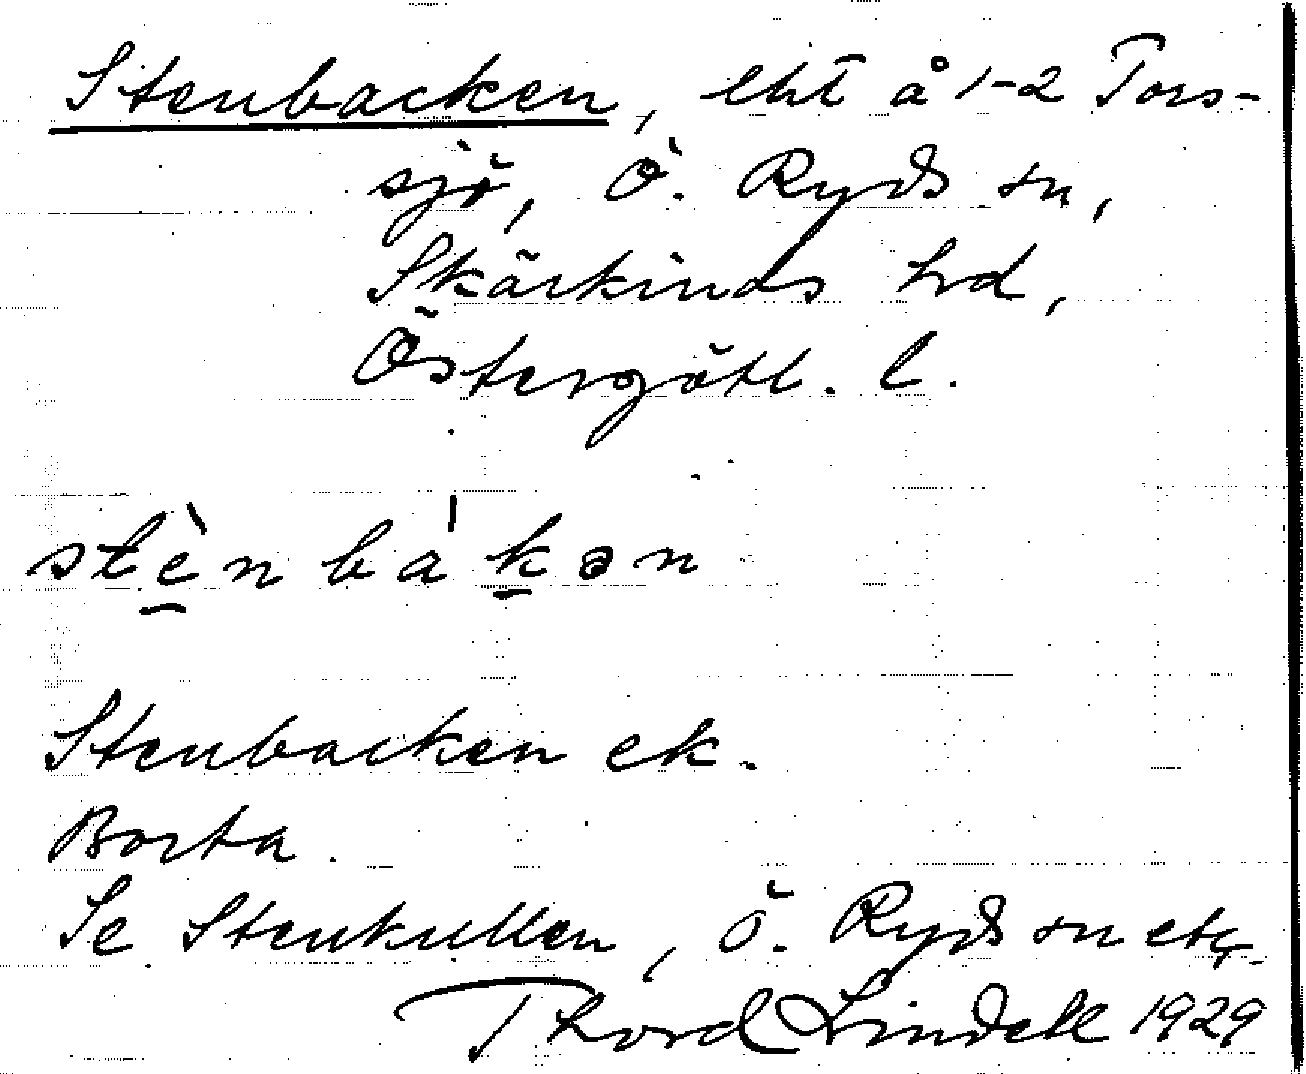 Stenbacken, lht å 1-2 Tors-
sjö, Ö. Ryds sn,
Skärkinds hd,
Östergötl. l.
stènbákən
Stenbacken ek.
Borta.
Se Stenkullen, Ö. Ryds sn etc.
Thord Lindell 1929